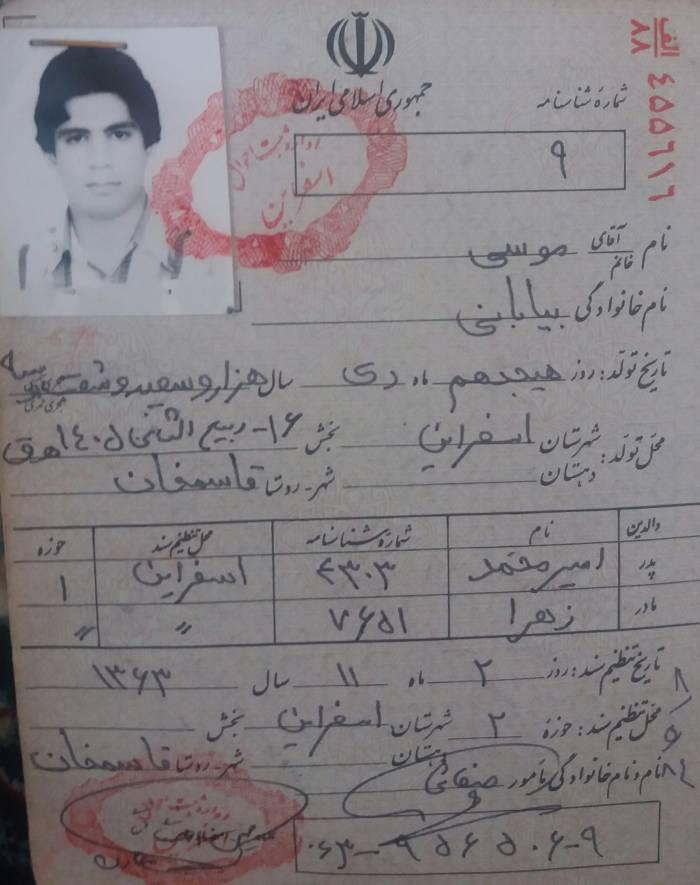 الف
۸۸
۴۵۵۶۱۶
جمهوری اسلامی ایران
شماره شناسنامه
۹
اداره ثبت احوال
اسفراین
نام آقای خانم موسی
نام خانوادگی بیابانی
تاریخ تولد: روز هیجدهم ماه دی سال هزار و سیصد و شصت و سه
هجری شمسی هجری قمری
۱۶- ربیع الثانی ۱۴۰۵ هق
محل تولد: شهرستان اسفراین بخش
دهستان شهر-روستا قاسمخان
والدین نام شماره شناسنامه محل تنظیم سند حوزه
پدر امیرمحمد ۴۳۰۳ اسفراین ۱
مادر زهرا ۷۶۵۱ " "
تاریخ تنظیم سند: روز ۲ ماه ۱۱ سال ۱۳۶۳
محل تنظیم سند: حوزه ۲ شهرستان اسفراین بخش
دهستان شهر-روستا قاسمخان
نام و نام خانوادگی مامور
اداره ثبت احوال
۰۶۳-۹۵۶۵۰۶-۹